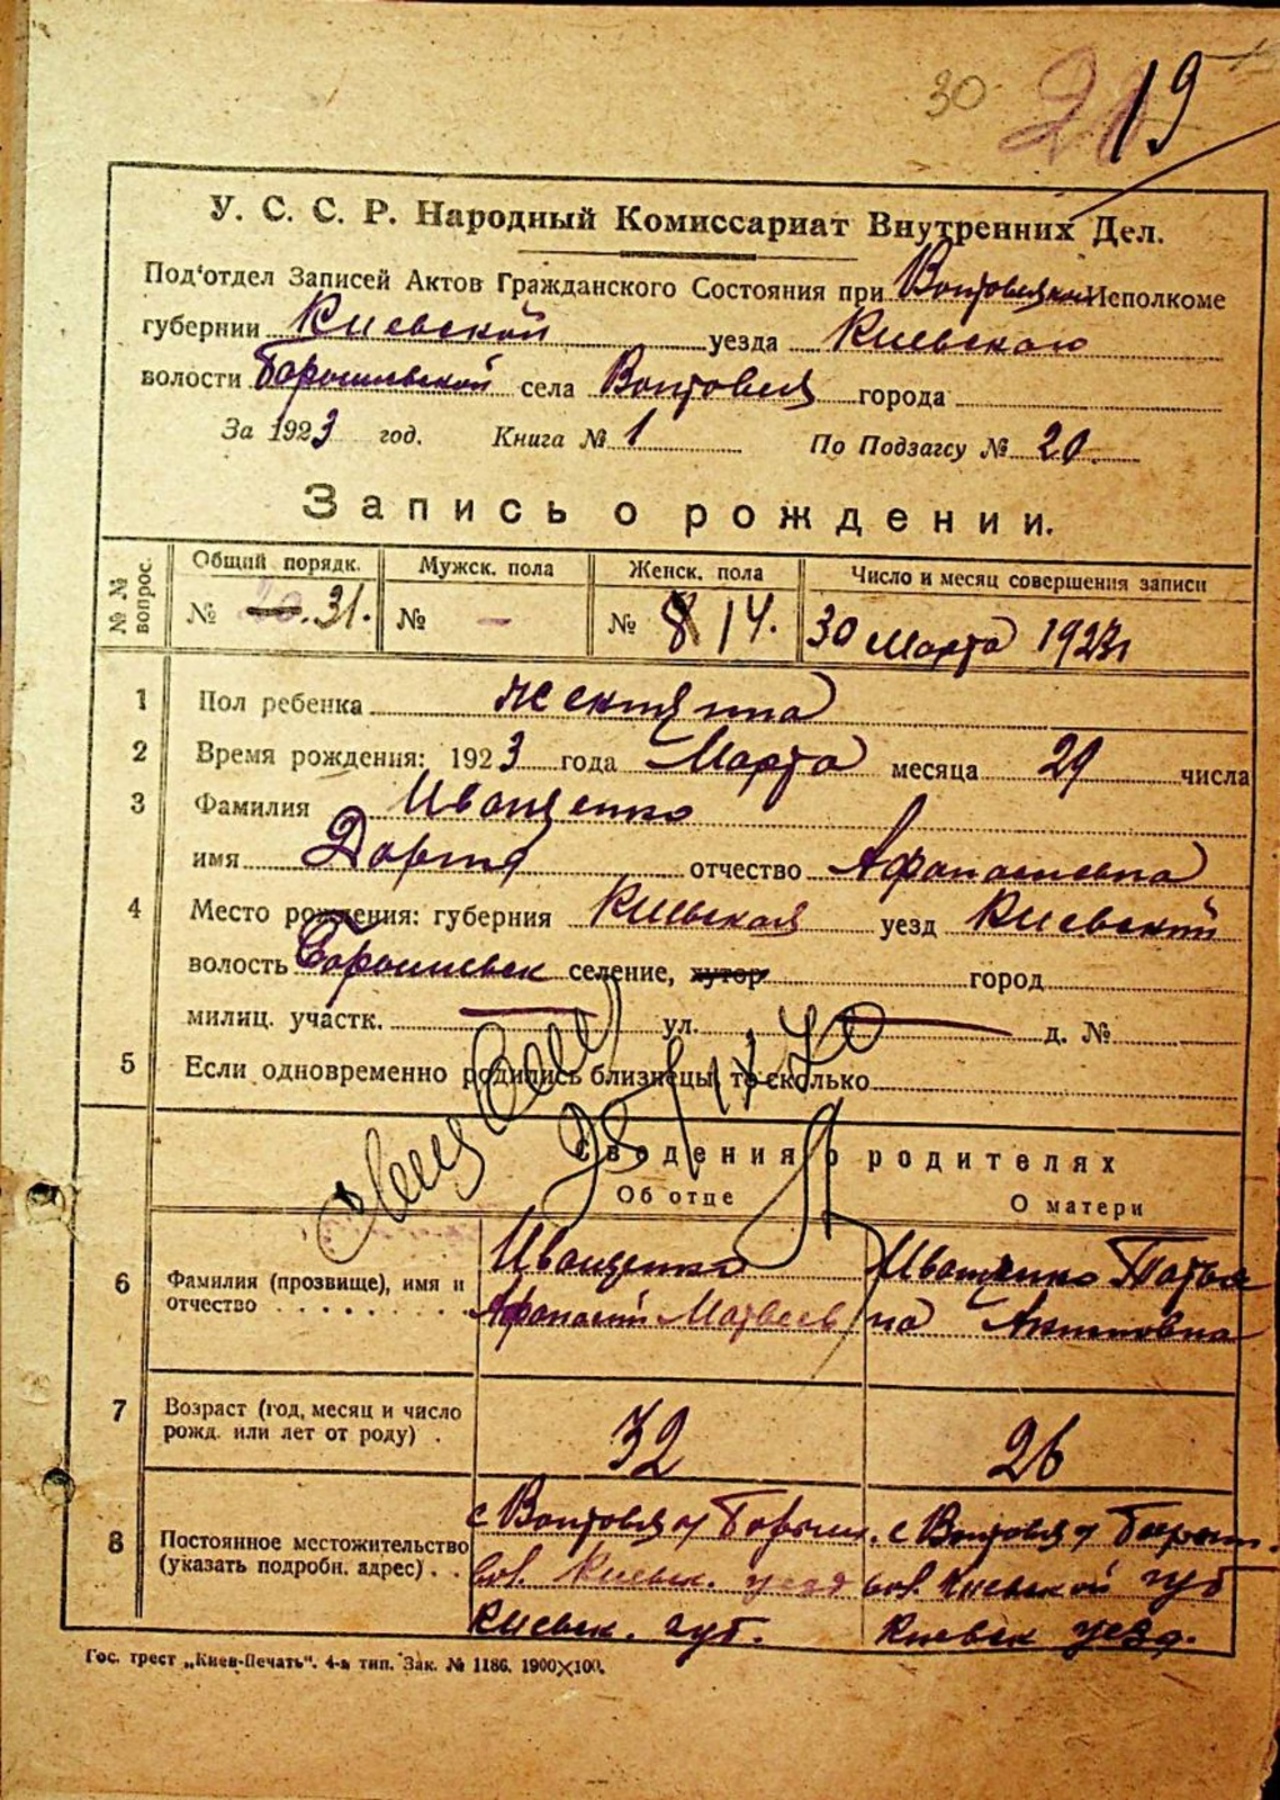 30 20 19
У. С. С. Р. Народный Комиссариат Внутренних Дел.
Под'отдел Записей Актов Гражданского Состояния при Исполкоме
губернии Киевской уезда Киевского
волости села города
За 1923 год. Книга № 1 По Подзагсу № 20.
Запись о рождении.
№ № вопрос. Общий порядк. Мужск. пола Женск. пола Число и месяц совершения записи
№ 20. 31. № - № 8 14. 30 Марта 1923
1 Пол ребенка
2 Время рождения: 1923 года Марта месяца 29 числа
3 Фамилия Иващенко
имя Дария отчество Афанасиевна
4 Место рождения: губерния Киевская уезд Киевский
волость селение, хутор город
милиц. участк. ул. д. №
5 Если одновременно родились близнецы, то сколько
Сведения о родителях
Об отце О матери
6 Фамилия (прозвище), имя и Иващенко Иващенко Татья
отчество Афанасий Матвеев на Антоновна
7 Возраст (год, месяц и число
рожд. или лет от роду) . 32 26
8 Постоянное местожительство
(указать подробн. адрес) . . вол. Киевск. уезд вол. Киевской губ
Киевск. губ. Киевск уезд.
Гос. трест „Киев-Печать". 4-я тип. Зак. № 1186. 1900×100.